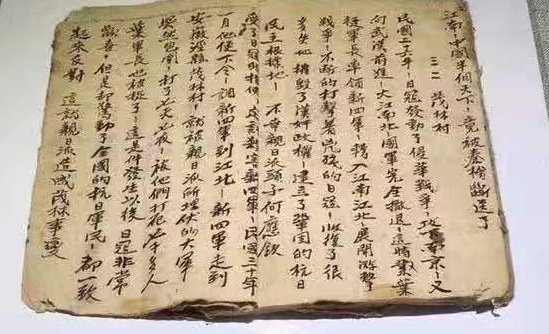 江南—中國半個天下—竟被秦檜斷送了
三二 茂林村
民國二六年—日寇發動了侵華戰爭—攻南京—又
向武漢前進—大江南北—國軍完全撤退—這時葉
挺軍長率領新四軍—轉入江南江北—展開游擊
戰爭—不斷的打擊着兇殘的日寇—收復了很
多失地—摧毀了漢奸政權—建立了鞏固的抗日
民主根據地—不幸親日派頭子何應欽
受了日寇的指使—計謀害新四軍—民國三十年
一月他便下令—調新四軍到江北—新四軍走到
安徽涇縣茂林村—就被親日派所埋伏的大軍
突然包圍—打了七天七夜—被他們打死七千多人
葉軍長也被捉了—這是件發生以後—日寇非常
歡喜—但是却驚動了全國的抗日軍民—都一致
起來反對 這就親日派造成茂林事變